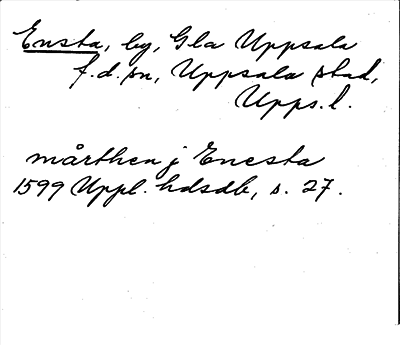 Ensta, by, Gla Uppsala
f.d. sn, Uppsala stad,
Upps. l.
mårthen j Enesta
1599 Uppl. hdsdb, s. 27.